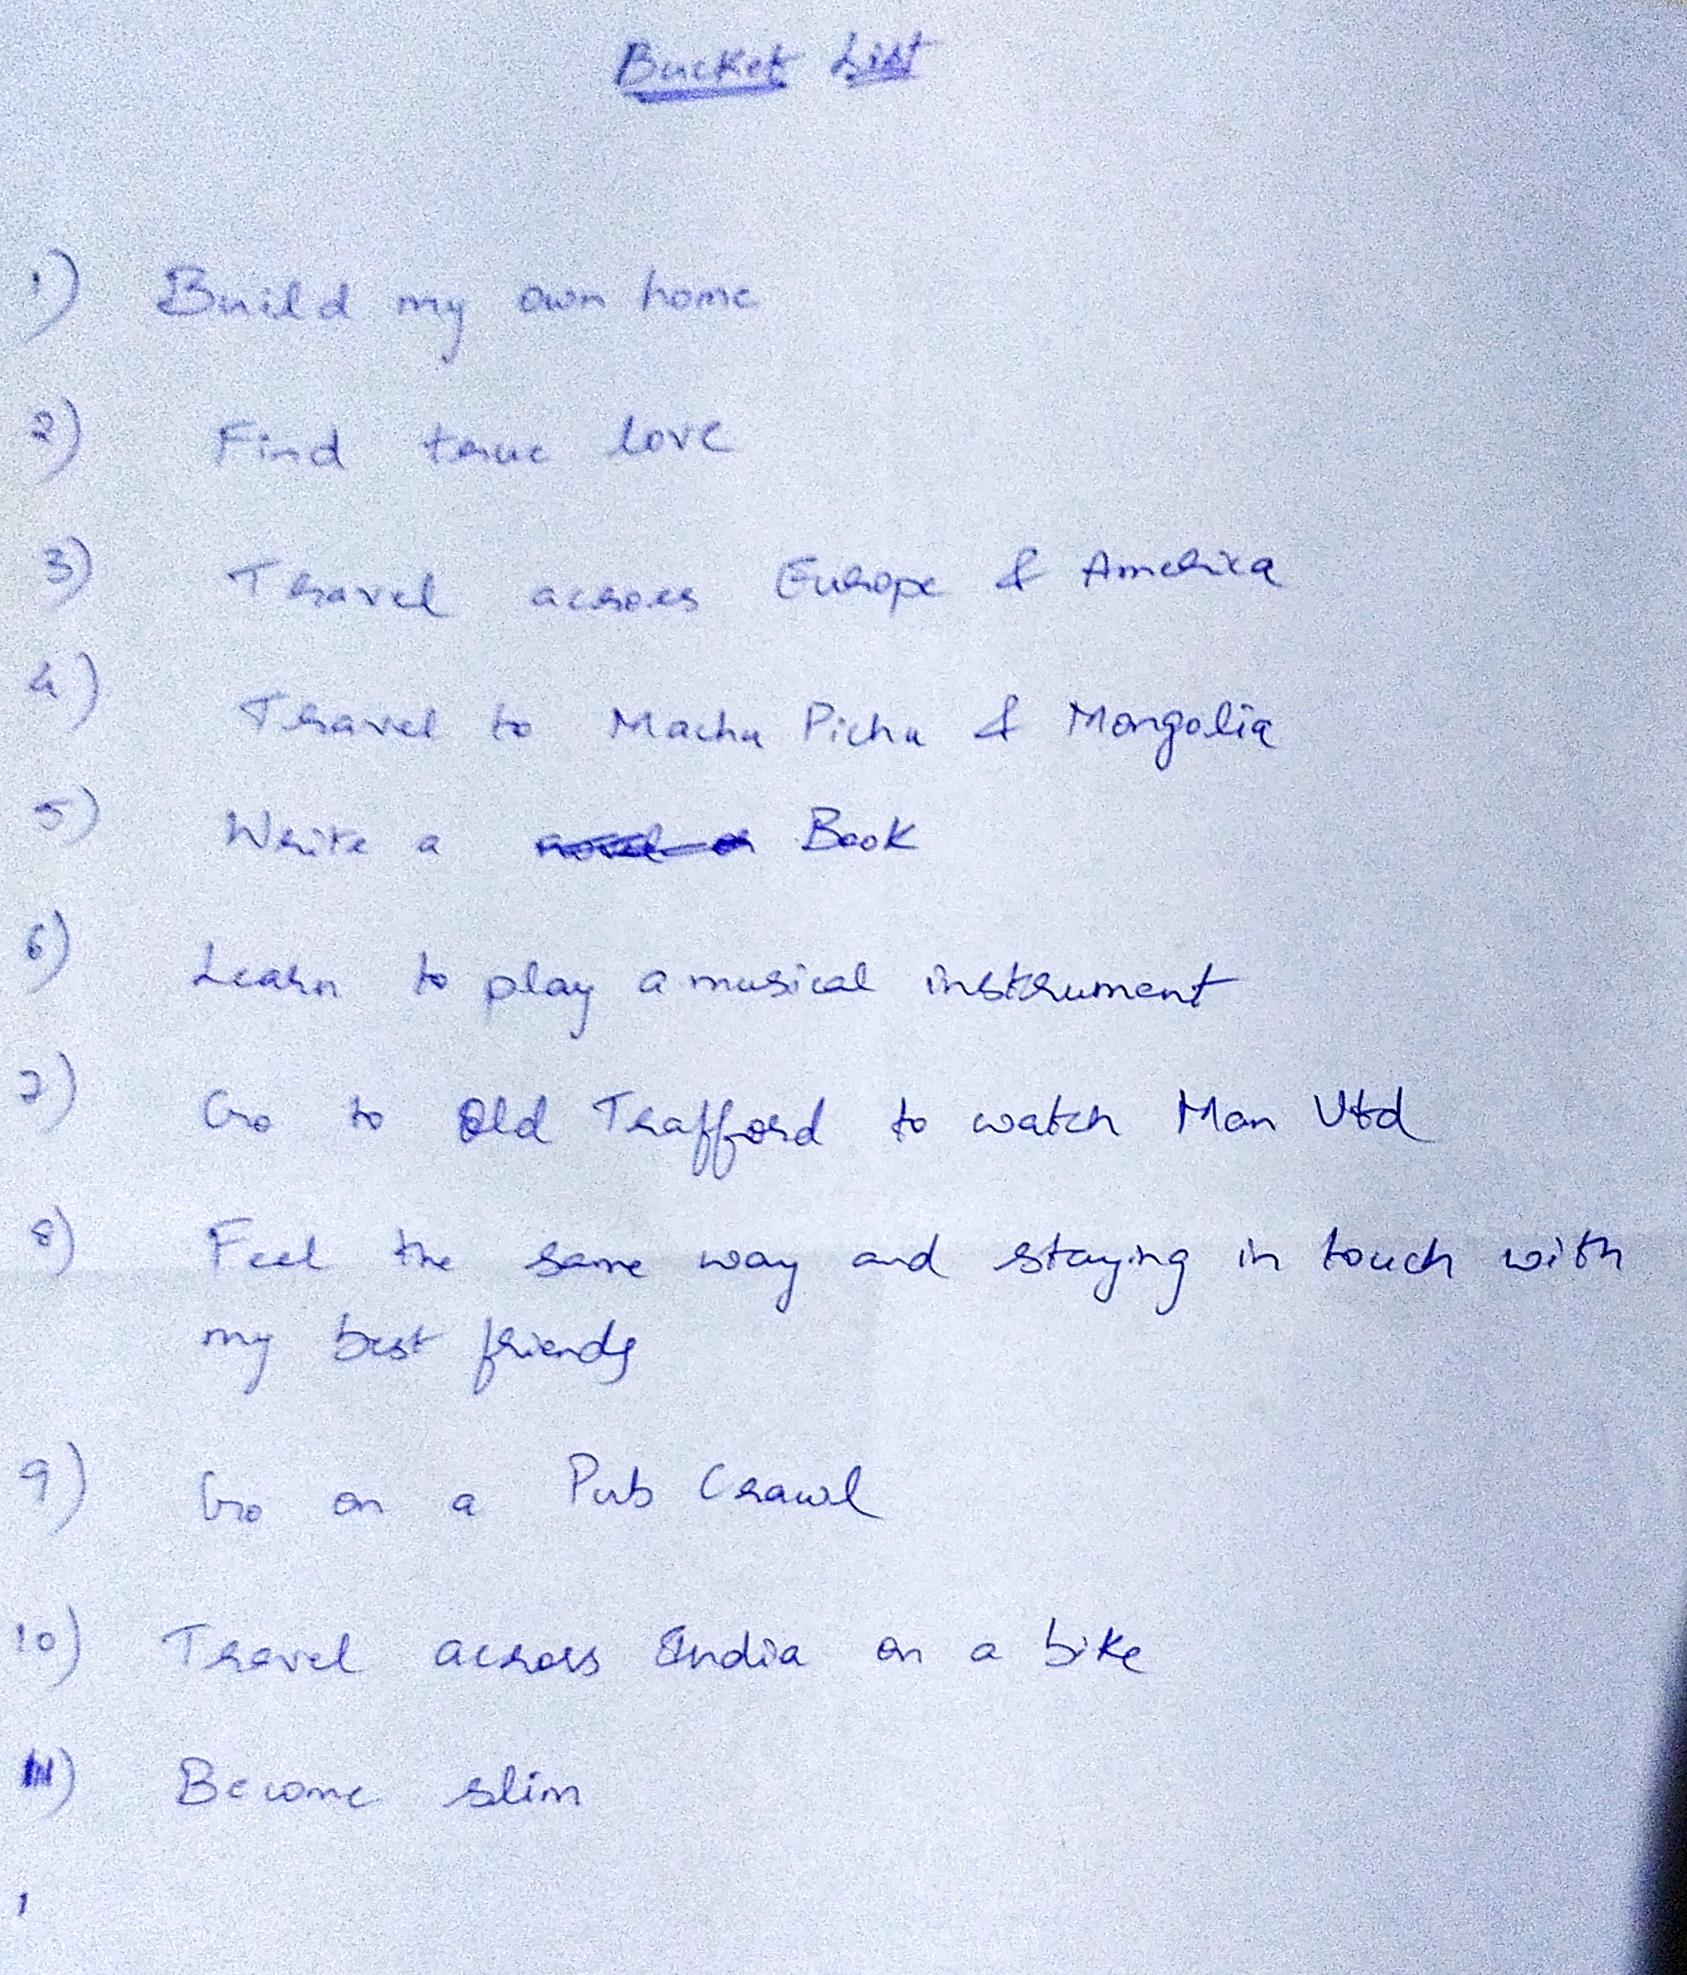 Bucket List
1) Build my own home
2) Find true love
3) Travel across Europe & America
4) Travel to Machu Pichu & Mongolia
5) Write a novel or Book
6) Learn to play a musical instrument
7) Go to Old Trafford to watch Man Utd
8) Feel the same way and staying in touch with
my best friends
9) Go on a Pub Crawl
10) Travel across India on a bike
11) Become slim
1